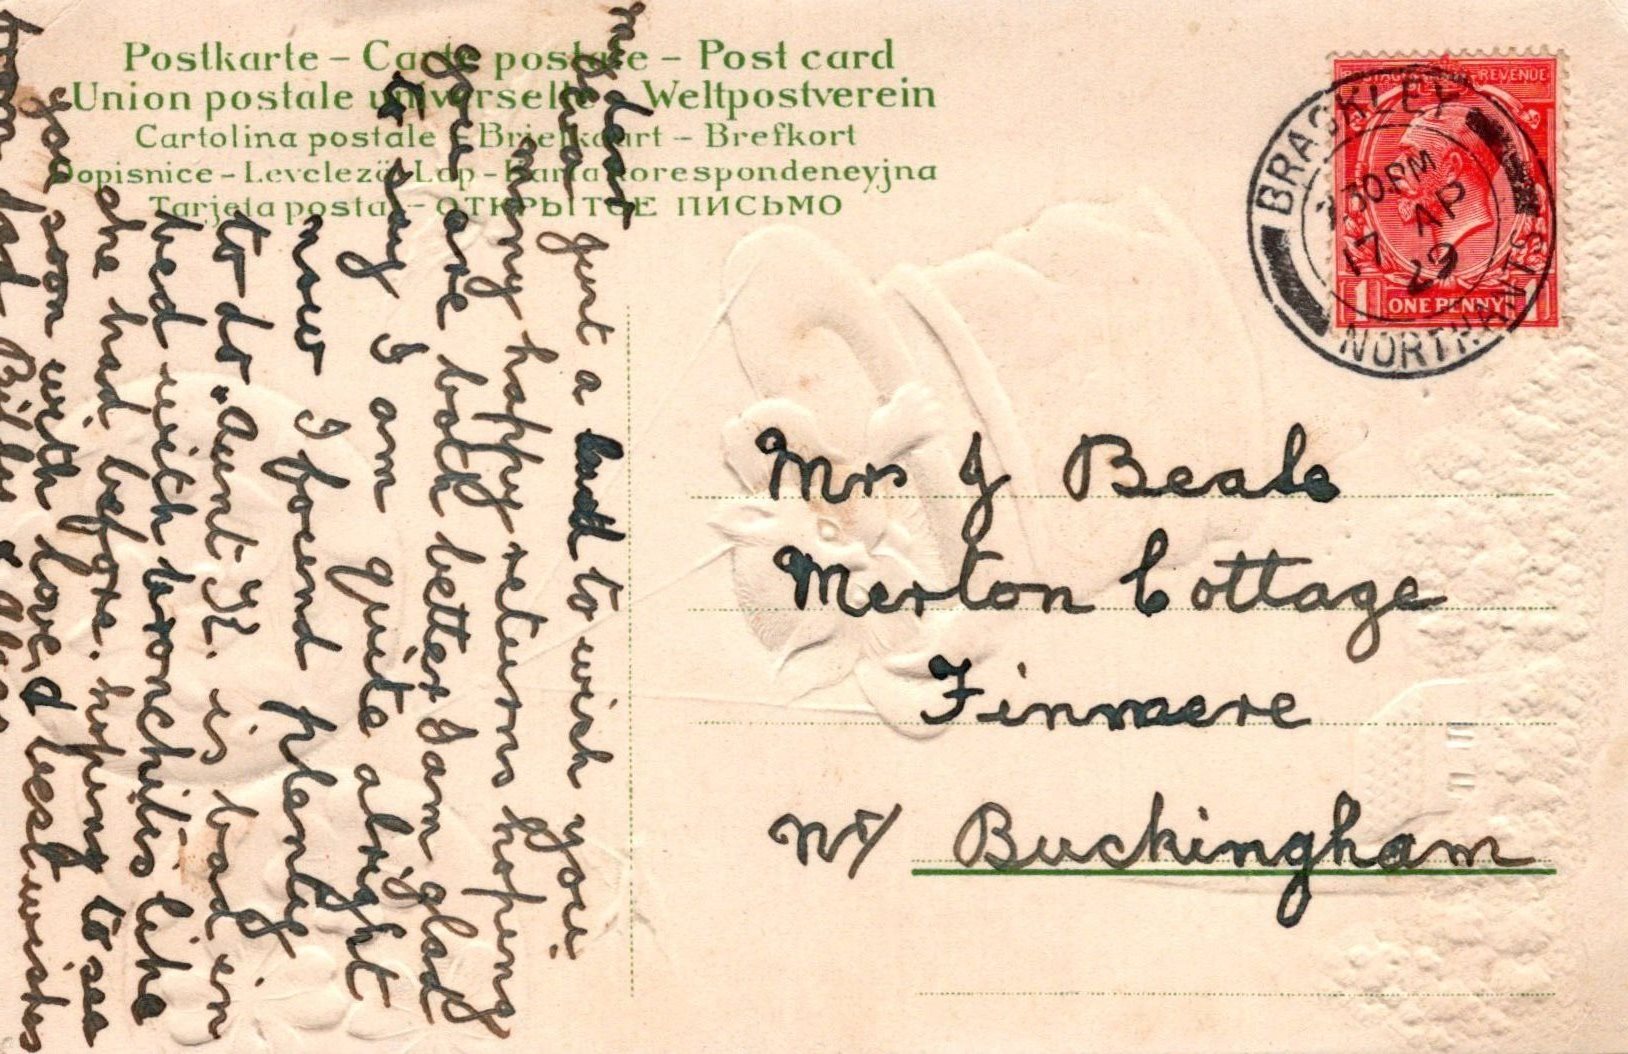 Postkarte – Carte postale – Post card
Union postale universelle Weltpostverein
Cartolina postale – Briefkaart – Brefkort
Dopisnice – Levelező-Lap – Karta korespondencyjna
Tarjeta postal – ОТКРЫТОЕ ПИСЬМО
POSTAGE REVENUE
1 ONE PENNY 1
BRACKLEY
30 PM
17 AP
29
NORTHANTS
Mrs J Beale
Merton Cottage
Finmere
Nr/ Buckingham
my dear
just a to wish you
many happy returns hoping
you are both better I am glad
to say I am quite alright
now I found plenty
to do "Aunt K. is bad in
bed with bronchitis like
she had before. hoping to see
you soon with love & best wishes
from